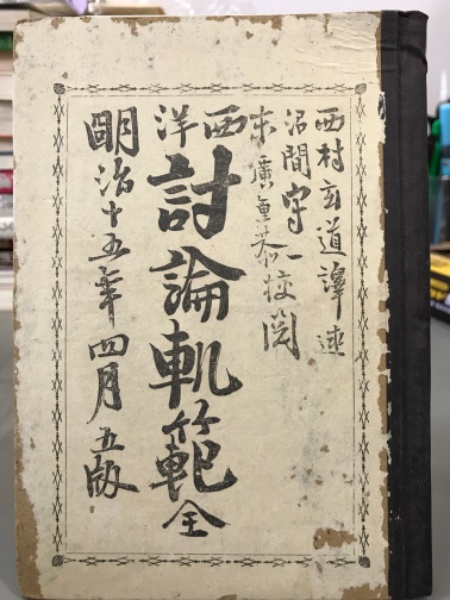 西村玄道譯述
沼間守一
末廣重恭校閲
西洋
討論軌範全
明治十五年四月五版